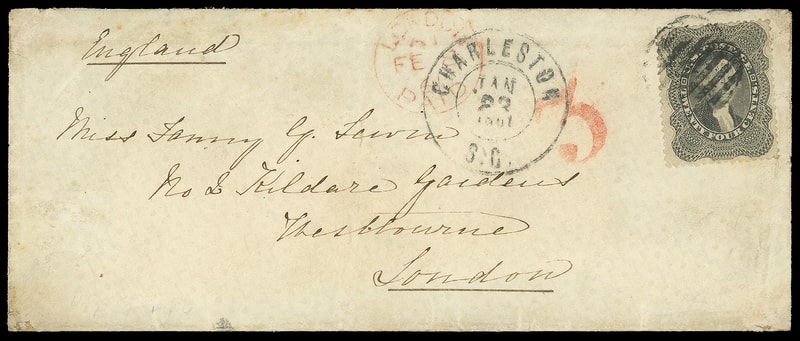 England
LONDON
FE
PAID
CHARLESTON
JAN
23
1861
S.C.
3
U.S. POSTAGE
TWENTY FOUR CENTS
Miss Fanny G. Lewin
No 2 Kildare Gardens
Westbourne
London